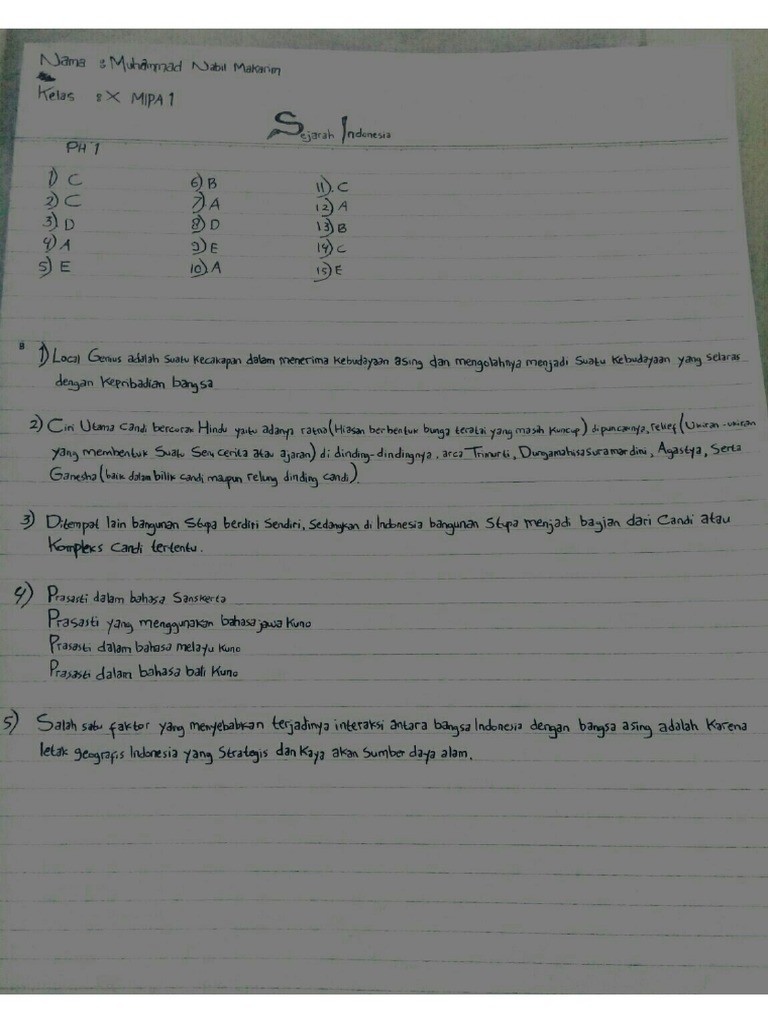 Nama : Muhammad Nabil Makarim
Kelas : X MIPA 1
Sejarah Indonesia
PH 1
1) C
2) C
3) D
4) A
5) E
6) B
7) A
8) D
9) E
10) A
11) C
12) A
13) B
14) C
15) E
B 1) Local Genius adalah suatu kecakapan dalam menerima kebudayaan asing dan mengolahnya menjadi suatu kebudayaan yang selaras
dengan kepribadian bangsa
2) Ciri Utama candi bercorak Hindu yaitu adanya ratna (Hiasan berbentuk bunga teratai yang masih kuncup) dipuncaknya, relief (Ukiran-ukiran
yang membentuk suatu seni cerita atau ajaran) di dinding-dindingnya, arca Trimurti, Durgamahisasuramardini, Agastya, serta
Ganesha (baik dalam bilik candi maupun relung dinding candi).
3) Ditempat lain bangunan Stupa berdiri sendiri, sedangkan di Indonesia bangunan Stupa menjadi bagian dari Candi atau
Kompleks candi tertentu.
4) Prasasti dalam bahasa Sanskerta
Prasasti yang menggunakan bahasa jawa kuno
Prasasti dalam bahasa melayu kuno
Prasasti dalam bahasa bali kuno
5) Salah satu faktor yang menyebabkan terjadinya interaksi antara bangsa Indonesia dengan bangsa asing adalah karena
letak geografis Indonesia yang strategis dan kaya akan sumber daya alam.